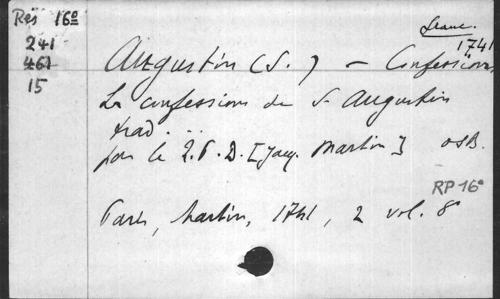 Rés 16º
241
461
15
franc.
1741
Augustin (S.) – Confessions
Les confessions de S. Augustin
trad. ...
par le R.P.D. [Jacq. Martin] OSB.
RP 16º
Paris, Martin, 1741, 2 vol. 8º